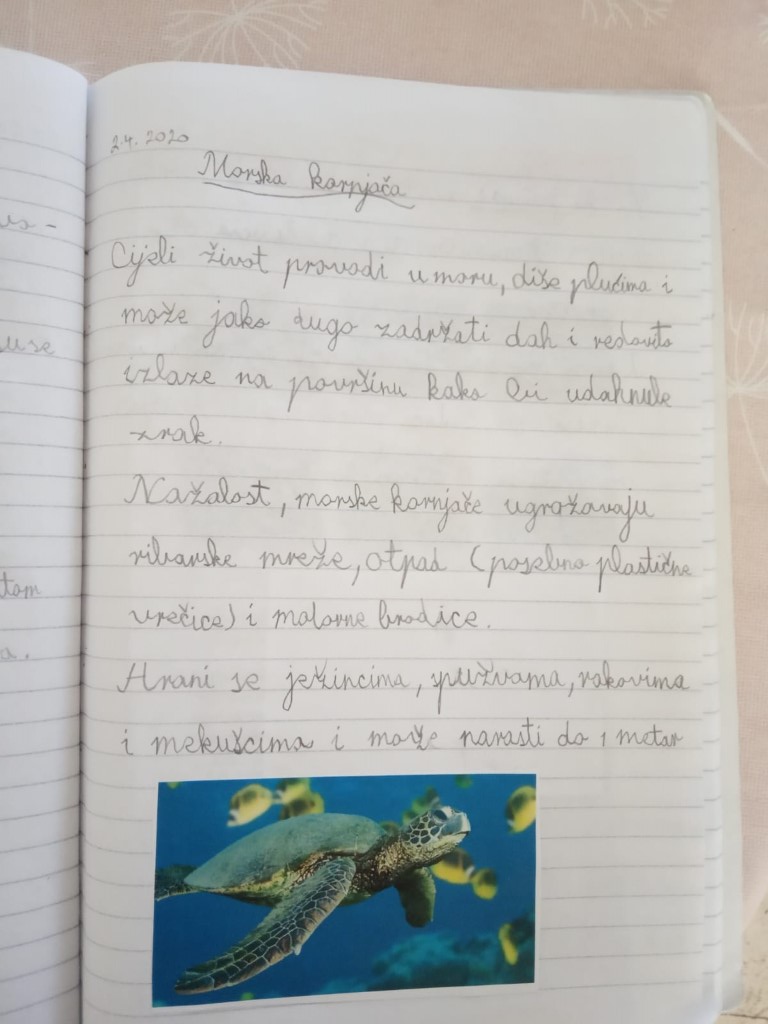 2.4. 2020
Morska kornjača
Cijeli život provodi u moru, diše plućima i
može jako dugo zadržati dah i redovito
izlaze na površinu kako bi udahnule
zrak.
Nažalost, morske kornjače ugrožavaju
ribarske mreže, otpad (posebno plastične
vrečice) i motorne brodice.
Hrani se ježincima, spužvama, rakovima
i mekušcima i može narasti do 1 metar
use
tom
a.